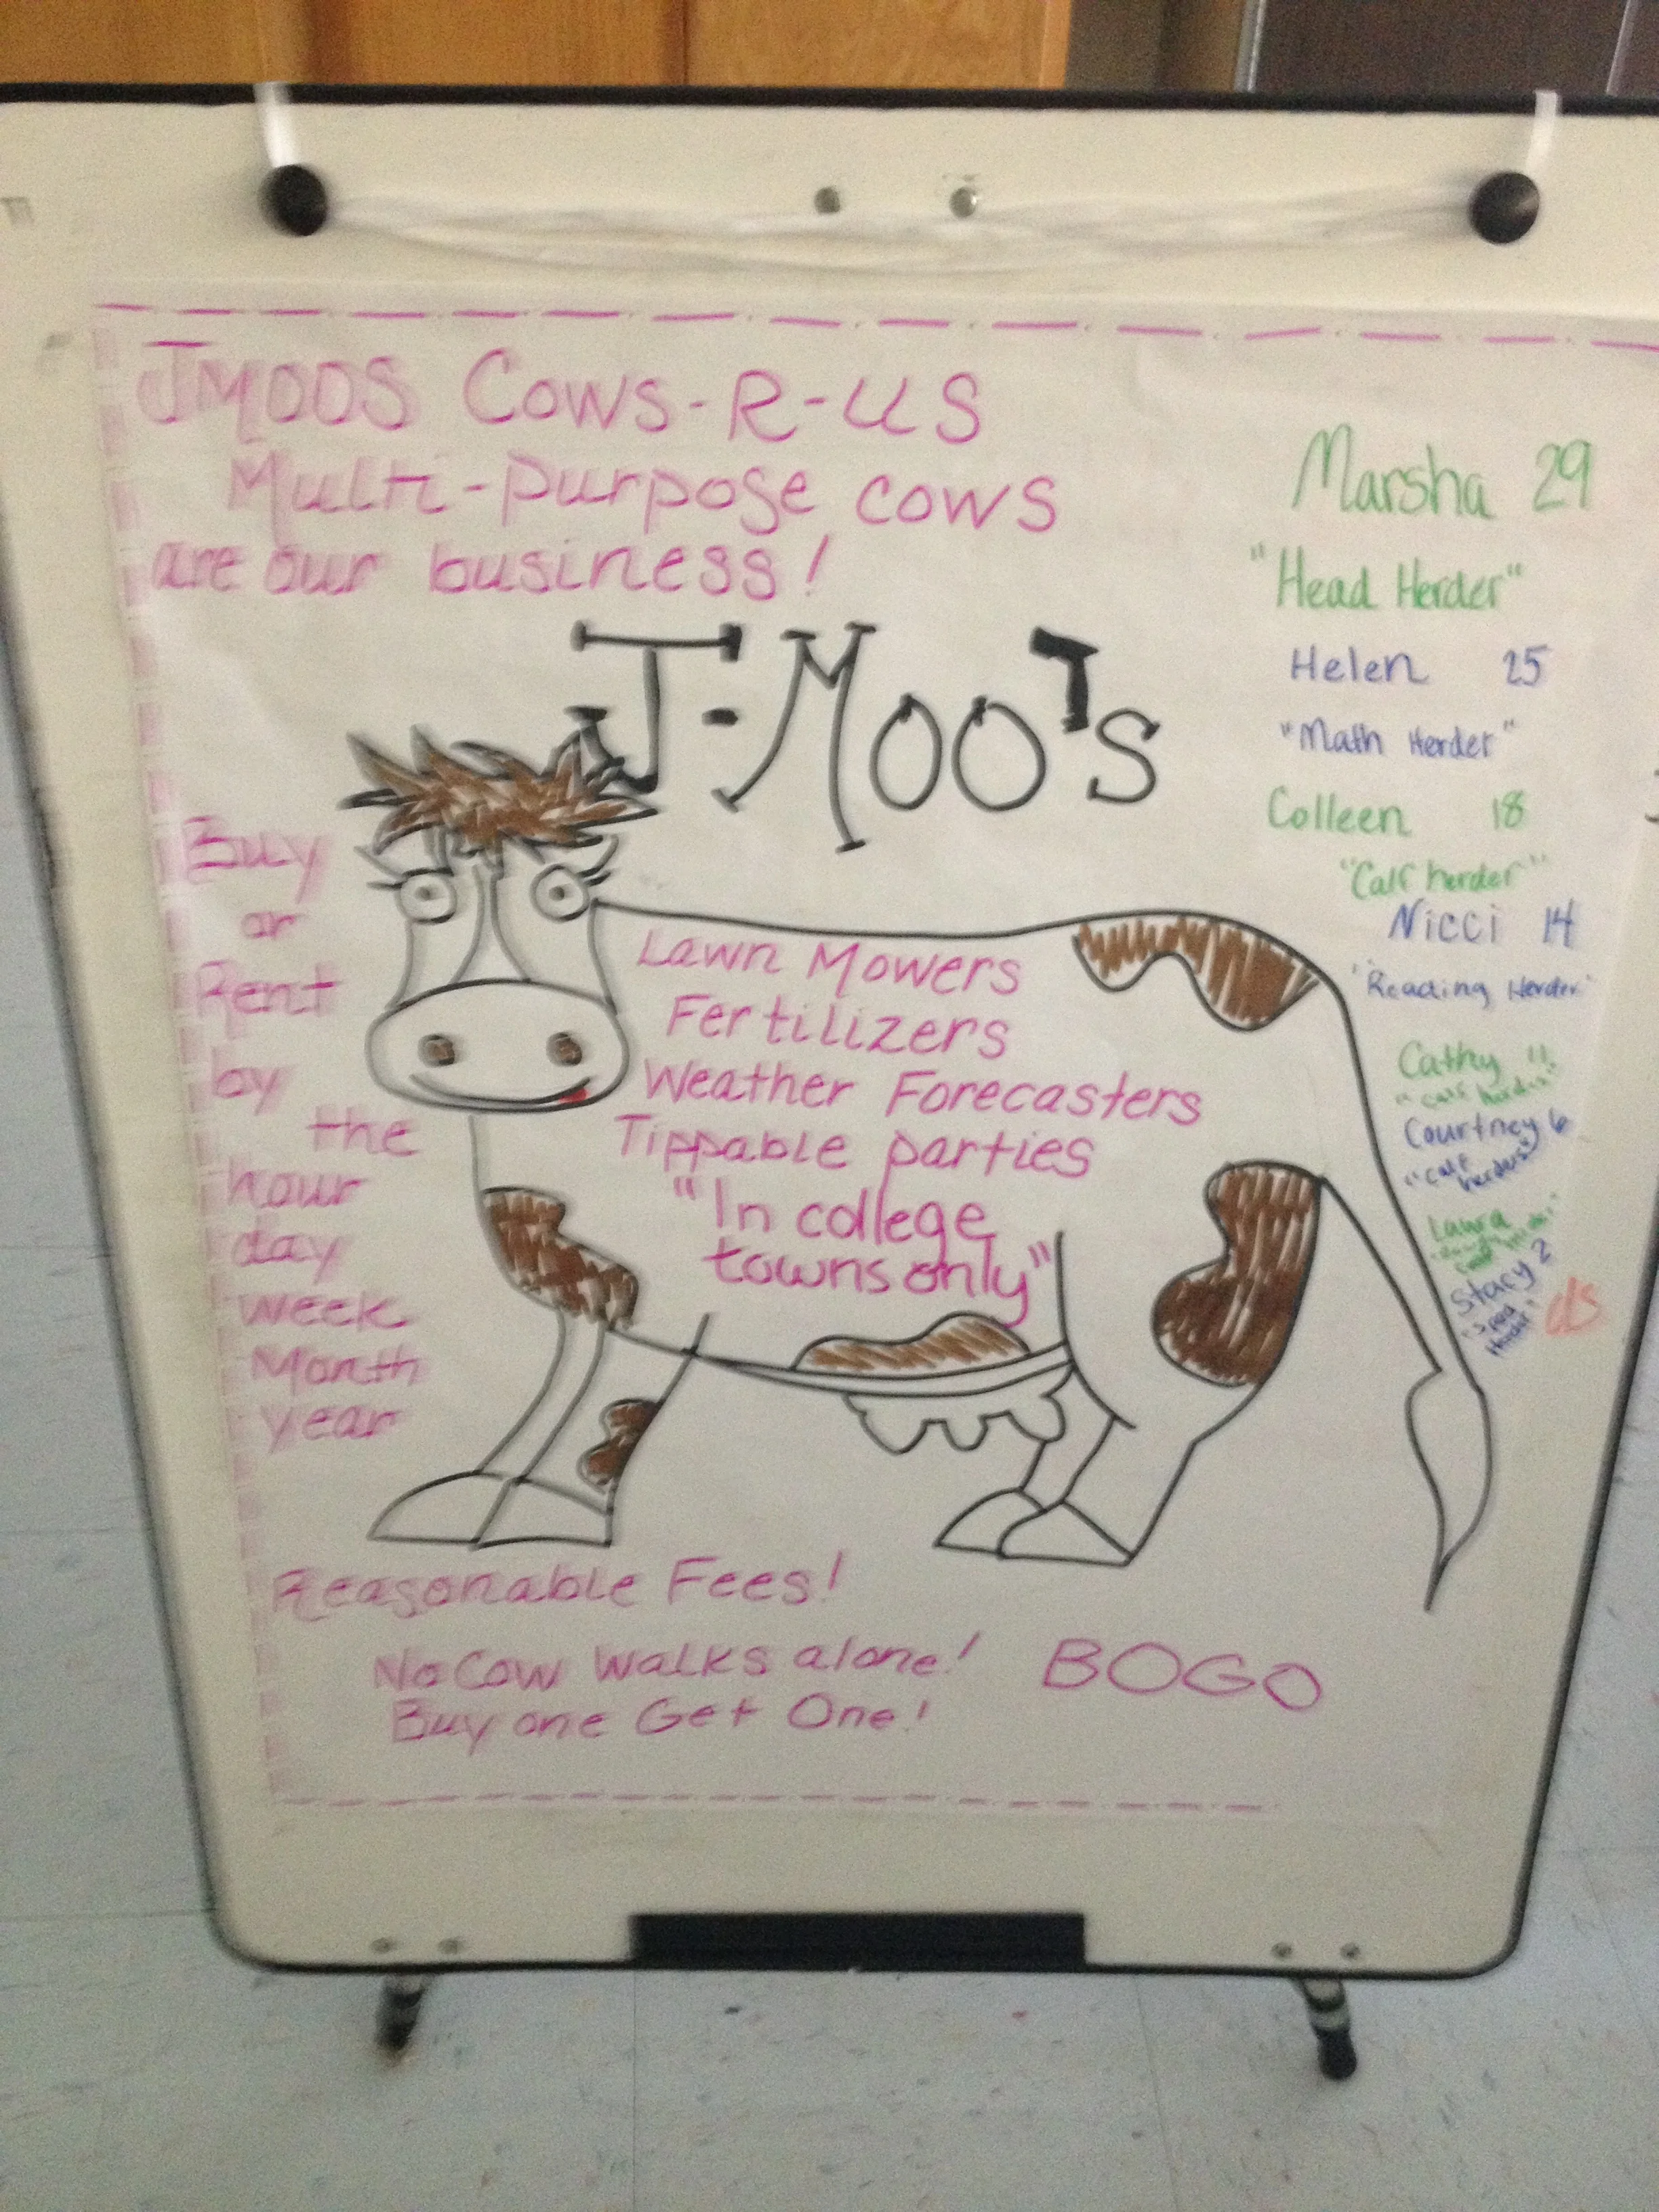 JMOOS Cows-R-US
Multi-Purpose cows
are our business!
J-Moo's
Buy
or
Rent
by
the
hour
day
week
Month
year
Lawn Mowers
Fertilizers
Weather Forecasters
Tippable parties
"In college
towns only"
Reasonable Fees!
No Cow Walks alone!
Buy one Get One!
BOGO
Marsha 29
"Head Herder"
Helen 25
"Math Herder"
Colleen 18
"Calf herder"
Nicci 14
"Reading Herder"
Cathy 11
"calf herder"
Courtney 6
"calf
herders"
Laura
Stacy 2
Herder"